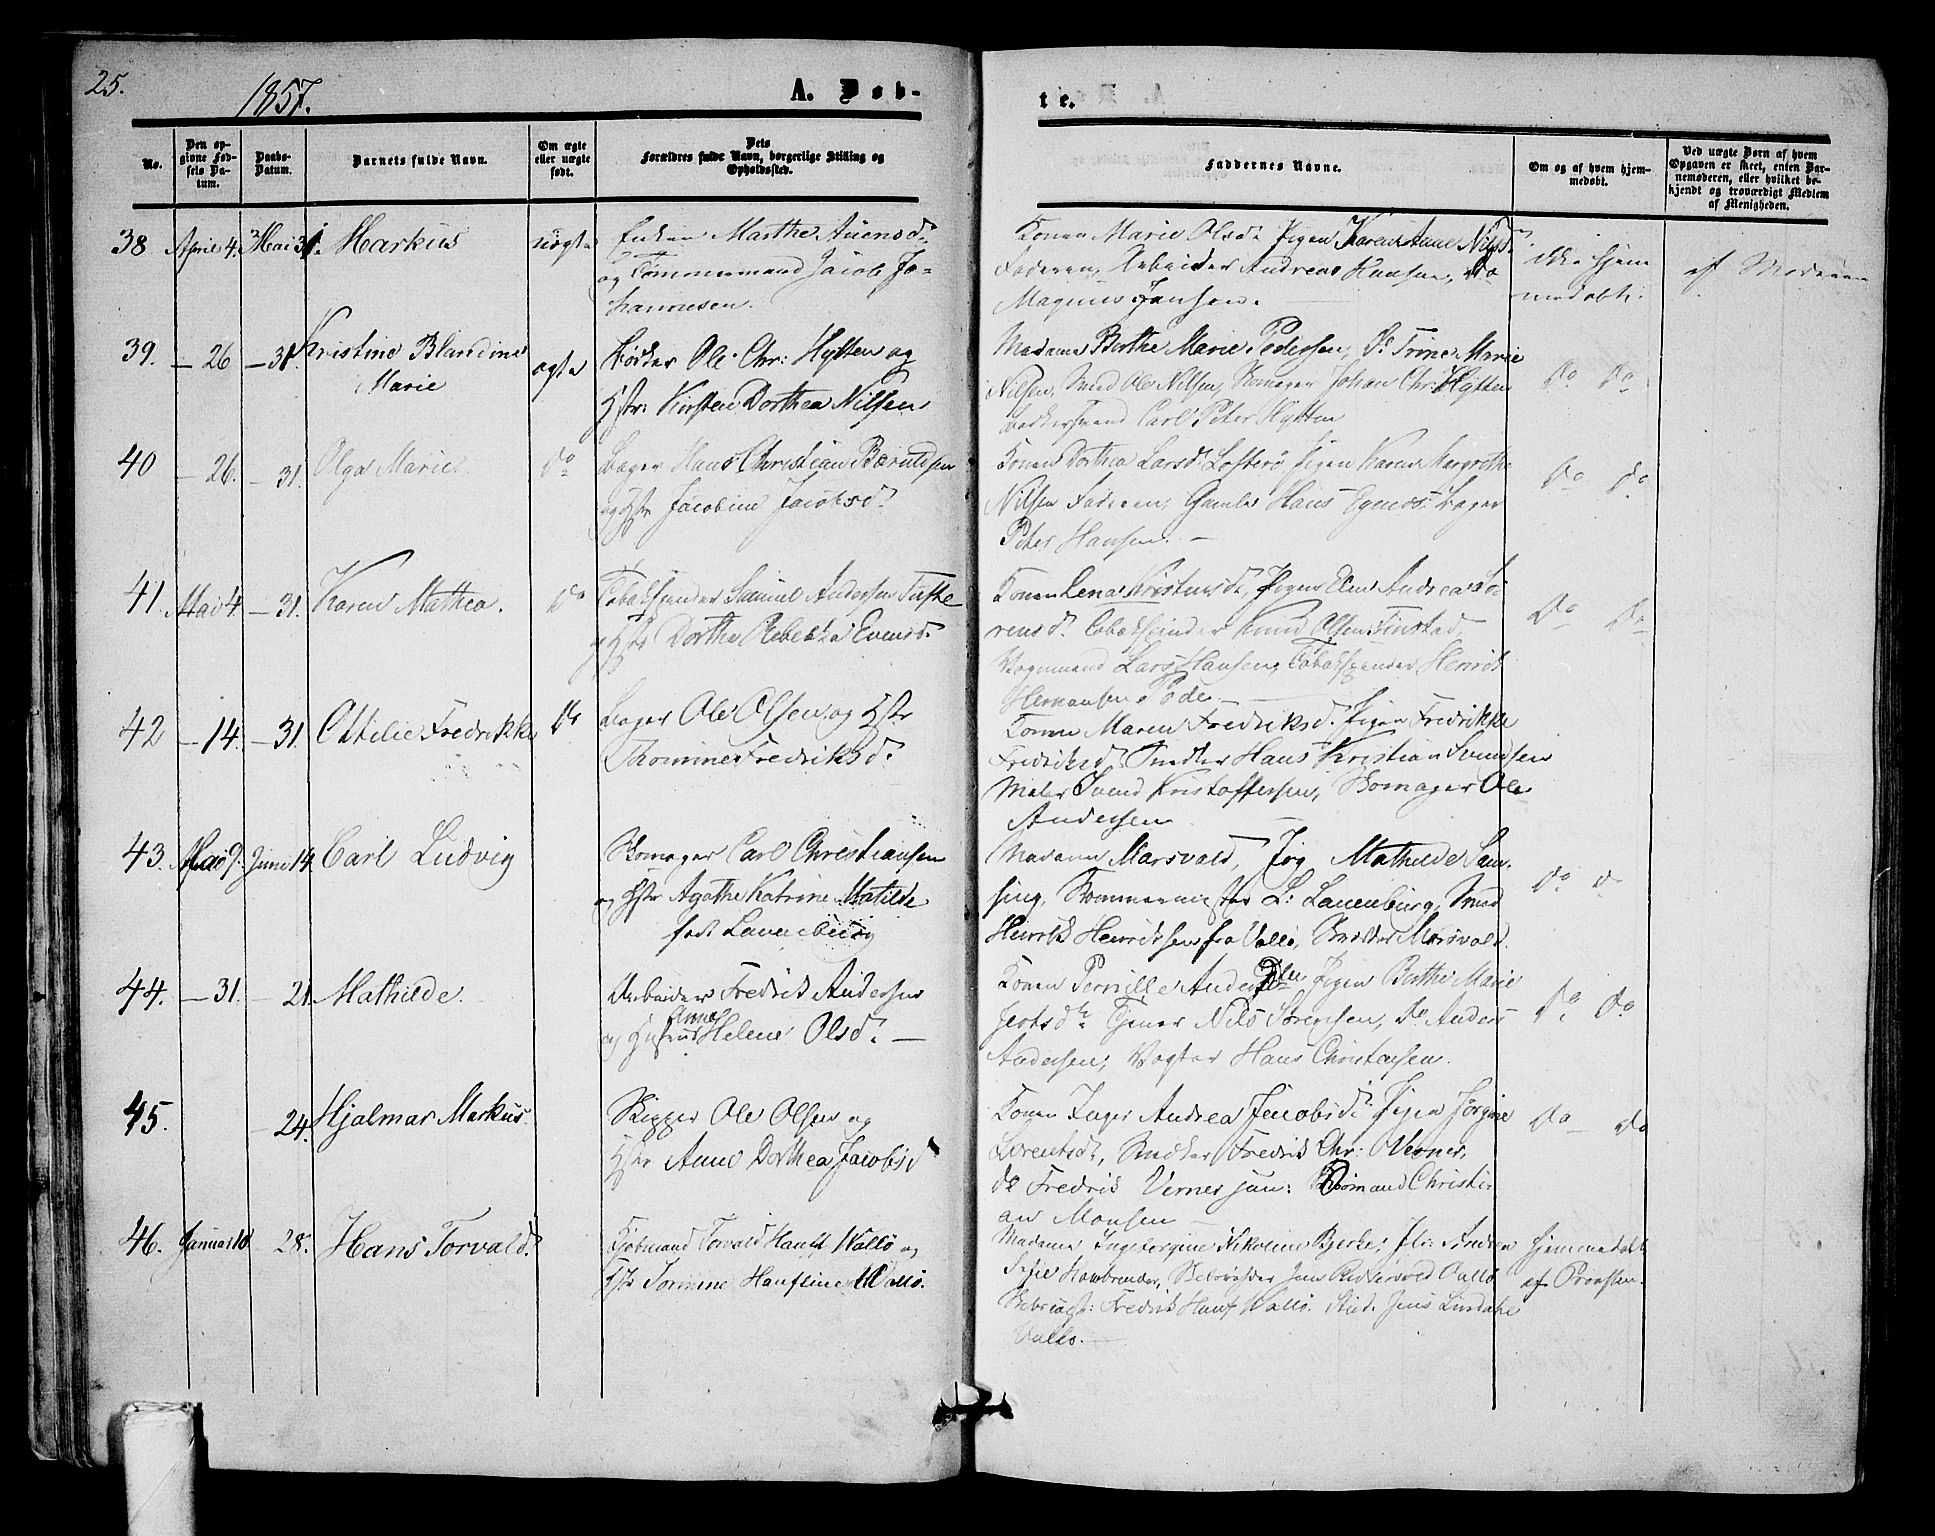 25.
1857.
A. Døb-
te.
No.
Den op-
givne Fød-
sels Da-
tum.
Daabs-
Datum.
Barnets fulde Navn.
Om ægte
eller uægte
født.
Dets
Forældres fulde Navn, borgerlige Stilling og
Opholdssted.
Faddernes Navne.
Om og af hvem hjem-
medøbt.
Ved uægte Børn af hvem
Opgaven er skeet, enten Bar-
nemoderen, eller hvilket be-
kjendt og troværdigt Medlem
af Menigheden.
38 April 4. Mai 31. Markus uægte Enken Marthe Auensd.
og Tømmermand Jacob Jo-
hannesen.
Konen Marie Olsd. Pigen Karen Anne Nilsd.
Faderen, Arbeider Andreas Hansen, Do
Magnus Jansen.
ikke hjem
medøbt.
af Moderen
39. — 26 — 31. Kristine Blandine
Marie
ægte
Bødker Ole Chr: Hytten og
Hstr: Kirsten Dorthea Nilsen
Madame Berthe Marie Pedersen, Do Trine Marie
Nilsen, Smed Ole Nilsen, Skomager Johan Chr. Hytten
Bødkersvend Carl Peter Hytten
Do Do
40 — 26. — 31. Olga Marie Do
Bager Hans Christian Berntsen
og Hstr Jacobine Jacobsd.
Konen Dorthea Larsd. Pigen Karen Margrethe
Nilsen Faderen, Hans Bager
Peter Hansen. —
Do Do
41 Mai 4 — 31. Karen Mathea. Do
Tobakspinder Samuel Andersen
og Hstr Dorthe Rebekka Evensd.
Konen Lena Kristensd., Pigen Elen Andrea So-
rensd. Tobakspinder Knud Olsen Tinstad,
Vognmand Lars Hansen, Tobakspinder Henrik
Hermansen
Do Do
42 — 14. — 31. Ottilie Fredrikke Do
Bager Ole Olsen og Hstr
Thomine Fredriksd.
Konen Maren Fredriksd. Pigen Fredrikke
Fredriksd. Snedker Hans Kristian Svendsen
Maler Svend Kristoffersen, Skomager Ole
Andersen
43. Mai 9. Juni 14. Carl Ludvig
Skomager Carl Christiansen
og Hstr Agathe Katrine Matilde
født Lauenburg
Madame Marsvald, Jfr. Mathilde Sam-
sing, L: Lauenburg, Smed
Henrik Henriksen fra Vallø, Snedker Marsvald.
Do Do
44. — 31. — 21. Mathilde.
Arbeider Fredrik Andersen
og Hustru Anne Helene Olsd. —
Konen Pernille Andersen Pigen Berthe Marie
Tjener Nils Sørensen, Do Anders
Andersen, Vogter Hans Christensen.
Do Do
45. — 24. Hjalmar Markus.
Skipper Ole Olsen og
Hstr Anne Dorthea Jacobsd
Konen Inger Andrea Jacobsd. Pigen Jørgine
Lorentsdt, Snedker Fredrik Chr: Verner,
do Fredrik Verner jun: Sømand Christi-
an Monsen —
Do — Do
46. Januar 10 28. Hans Torvald.
Kjøbmand Torvald Hauff Wallø og
Hstr Tomine Hauf Wallø.
Madame Ingeborgine Nikoline Bjerke, Jfr: Andrea
Jens Vallø
Fredrik Hauf Wallø. Stud. Jens Lindahl
Vallø. —
hjemmedøbt
af Provsten.